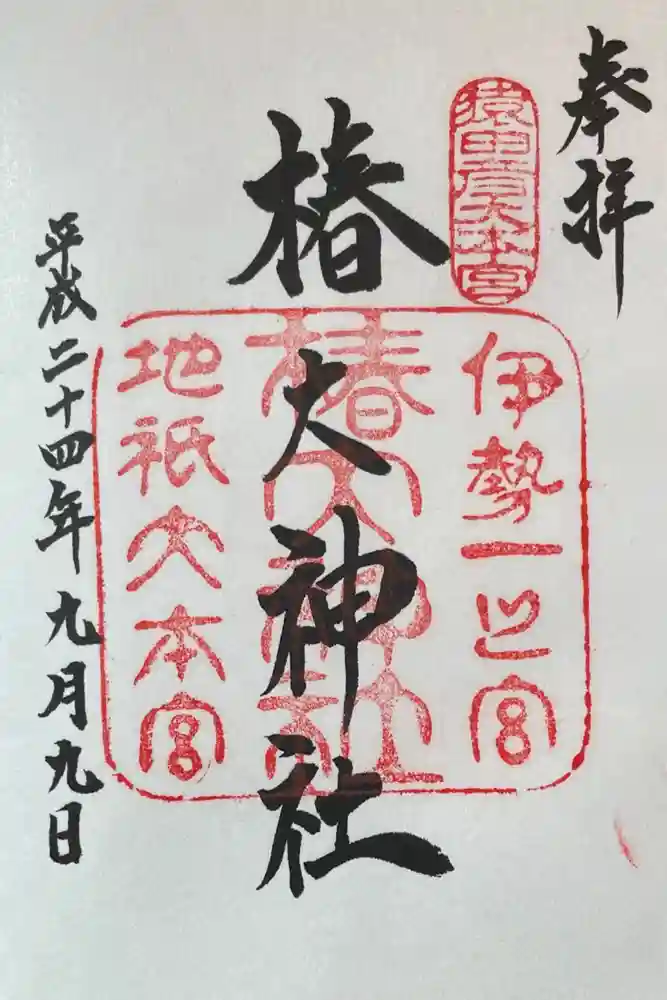 奉拝
猿田彦大本宮
椿大神社
伊勢一之宮
椿大神社
地祇大本宮
平成二十四年九月九日